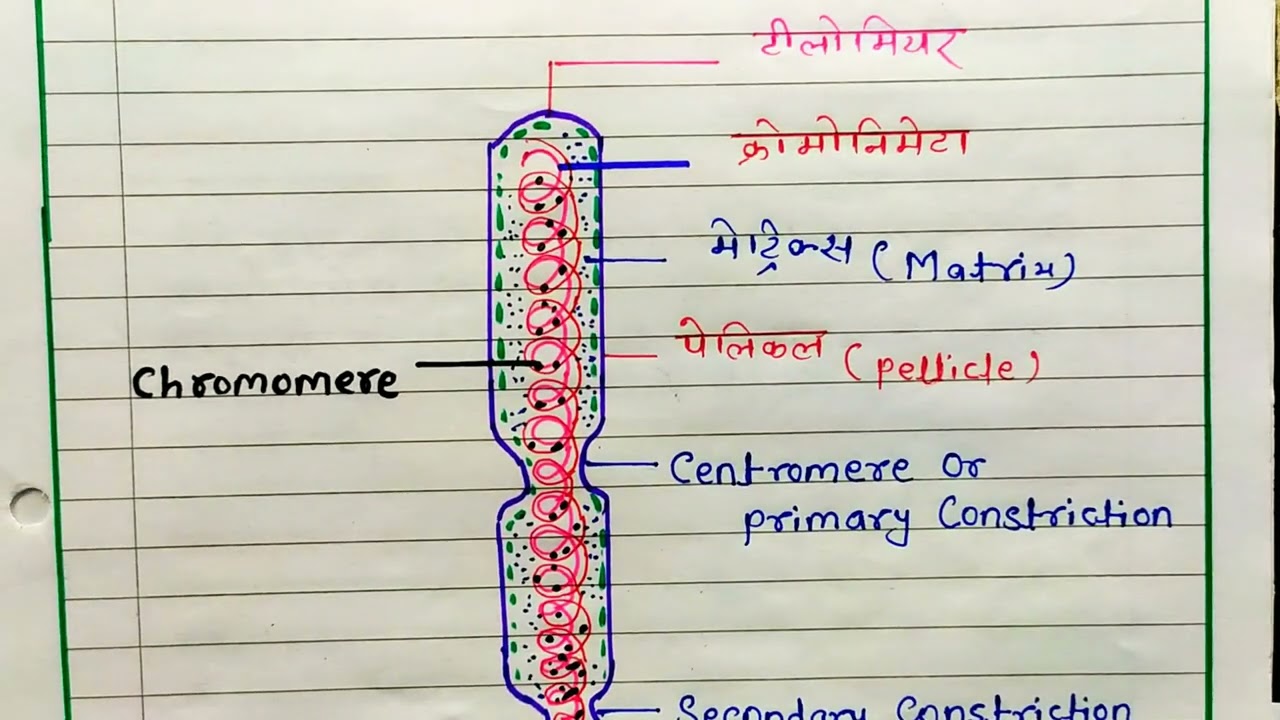 टीलोमियर
क्रोमोनिमेटा
मेट्रिक्स (Matrix)
पेलिकल (pellicle)
Chromomere
Centromere Or
primary Constriction
Secondary Constriction